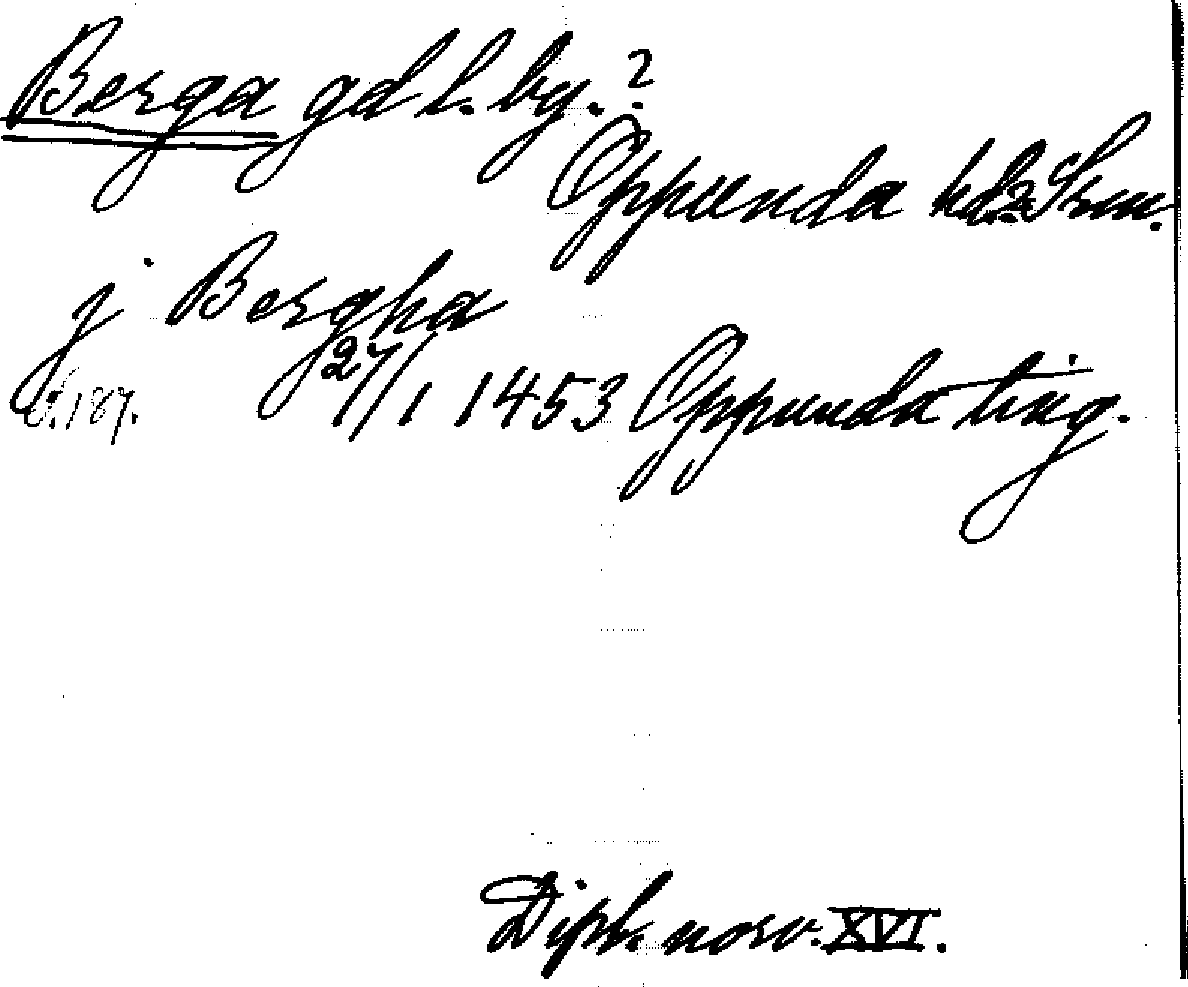 Berga gd l. by.?
Oppunda hd? Srm.
j Bergha
s. 187. 27/1 1453 Oppunda ting.
Dipl. norv. XVI.